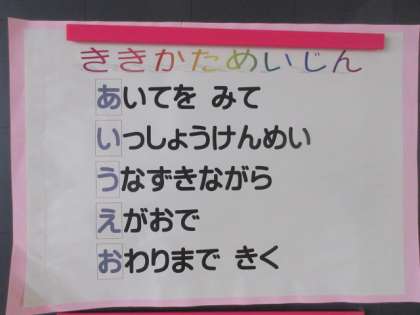 ききかためいじん
あいてを みて
いっしょうけんめい
うなずきながら
えがおで
おわりまで きく